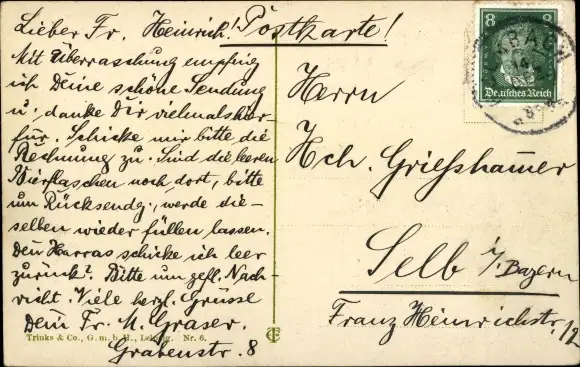 Postkarte!
Lieber Fr. Heinrich!
Mit Überraschung empfing
ich Deine schöne Sendung
u. danke Dir vielmals hier-
für. Schicke mir bitte die
Rechnung zu. Sind die leeren
Bierflaschen noch dort, bitte
um Rücksendg., werde die-
selben wieder füllen lassen.
Den Harras schicke ich leer
zurück. Bitte um gefl. Nach-
richt. Viele herzl. Grüsse
Dein Fr. M. Graser.
Grabenstr. 8
Trinks & Co., G. m. b. H., Leipzig. Nr. 6.
8 8
Deutsches Reich
14
Herrn
Hch. Grießhammer
Selb i/Bayern
Franz Heinrichstr. 12